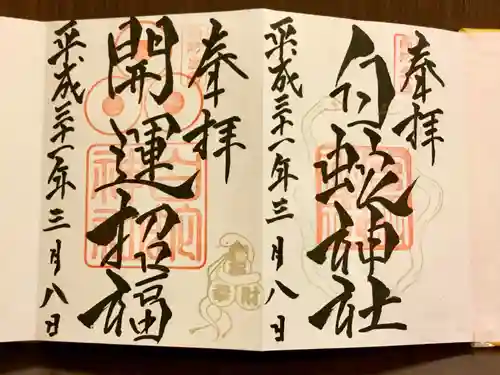 奉拝
白蛇神社
平成三十一年三月八日
奉拝
開運招福
平成三十一年三月八日
白蛇神社
財